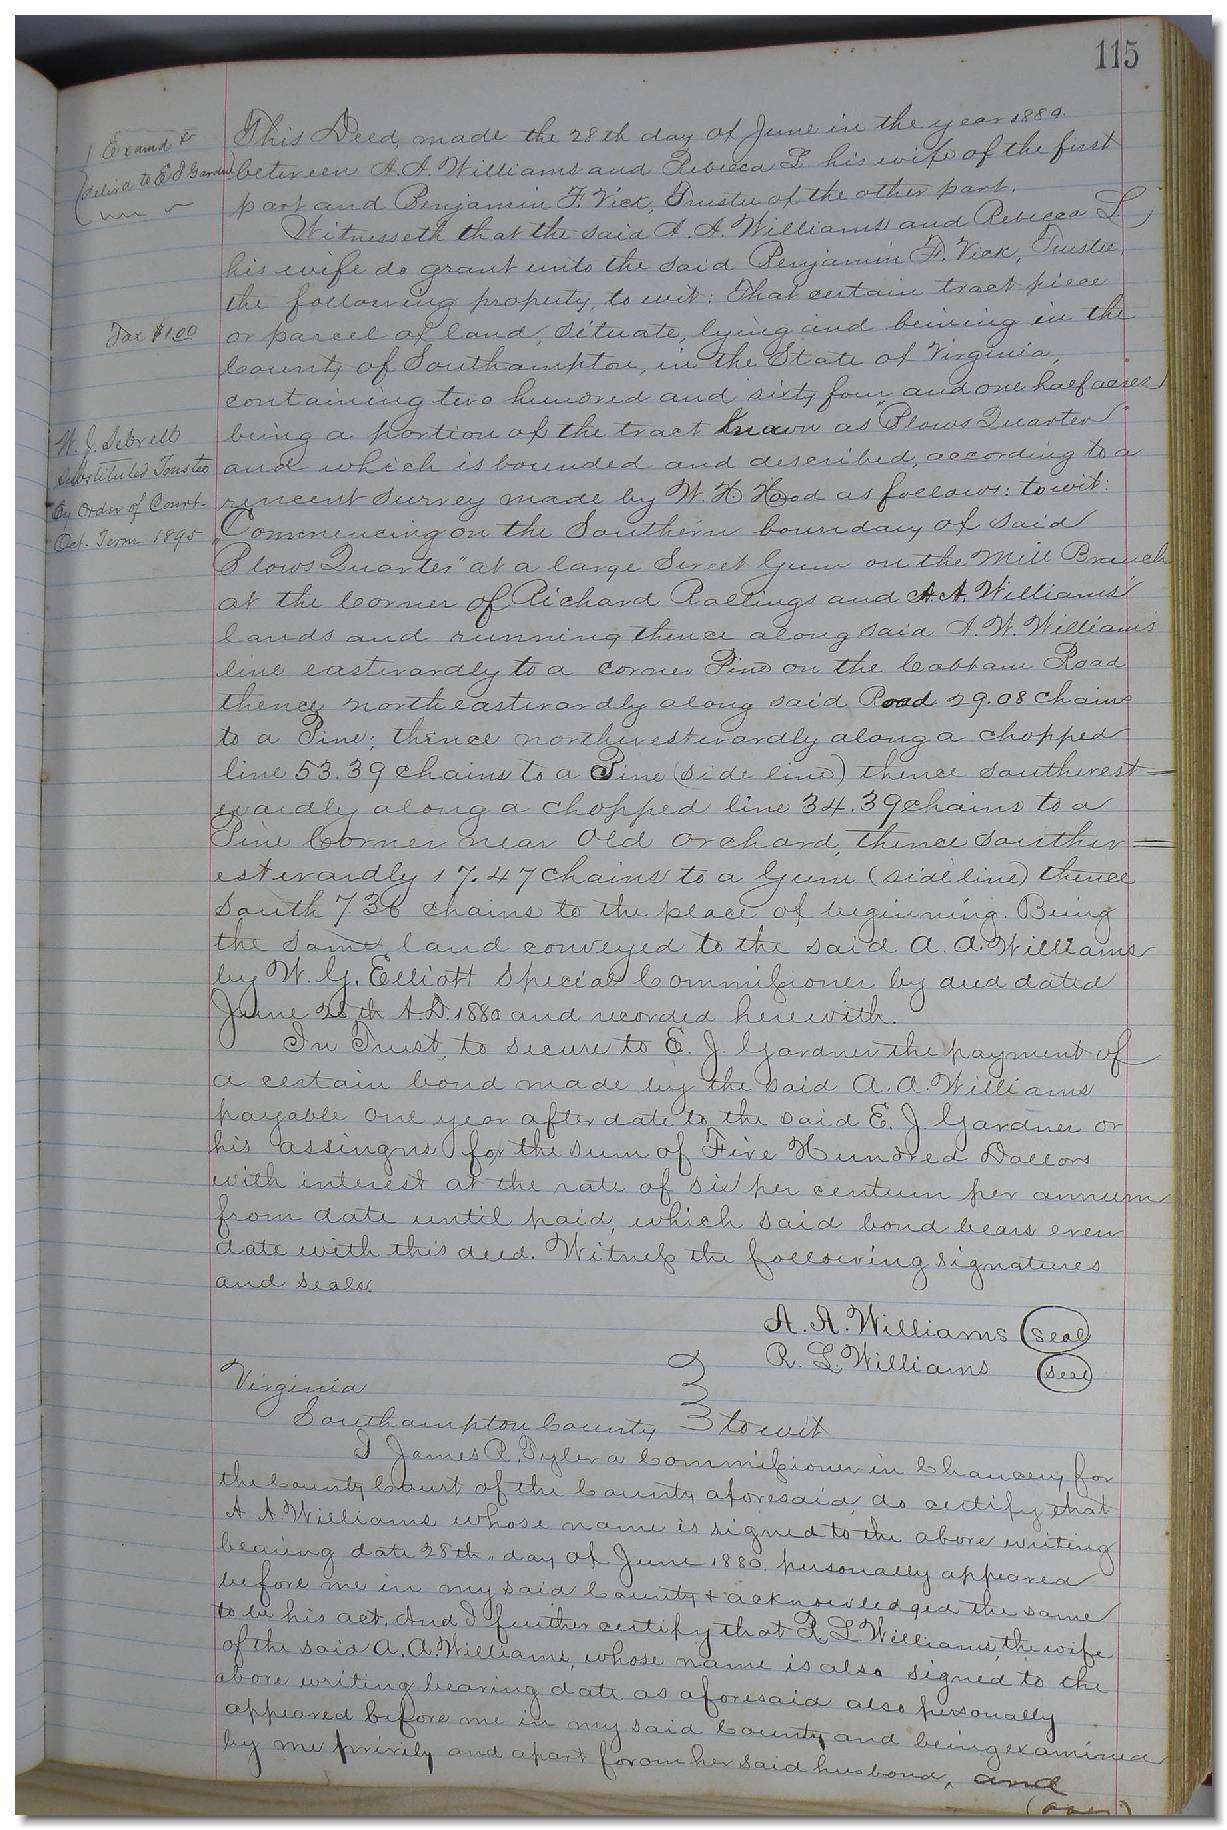 115
Examd &
deliv'd to E J Gardner
This Deed, made the 28th day of June in the year 1880.
between A. A. Williams and Rebecca L his wife of the first
part and Benjamin F. Vick, Trustee of the other part.
Witnesseth that the said A. A. Williams and Rebecca L
his wife do grant unto the said Benjamin F. Vick, Trustee,
the following property, to wit: That certain tract piece
Tax $1.00
or parcel of land, situate, lying and beining in the
County of Southampton, in the State of Virginia,
containing two hundred and sixty four, and one half acres
being a portion of the tract known as "Plows Quarter"
W. J. Sebrell
Substituted Trustee
By Order of Court.
Oct. Term 1895
and which is bounded and described, according to a
rincent survey made by W. H. Hood as follows: to wit:
Commencing on the Southern boundary of said
"Plows Quarter" at a large Sweet Gum on the Mill Branch
at the Corner of Richard Rallings and A. A. Williams'
lands and running thence along said A. W. Williams'
line eastwardly to a corner Pine on the Cabbam Road
thence northeastwardly along said Road 29.08 chains
to a Pine; thence northwestwardly along a chopped
line 53.39 chains to a Pine (side line) thence southwest=
wardly along a chopped line 34.39 chains to a
Pine Corner near Old Orchard, thence souther=
estwardly 17.47 chains to a Gum (side line) thence
South 7 36 chains to the place of beginning. Being
the same land conveyed to the said A. A. Williams
by W. G. Elliott Special Commissioner by deed dated
June 28th A.D. 1880 and recorded herewith.
In Trust, to secure to E. J. Gardner the payment of
a certain bond made by the said A. A. Williams
payable one year after date to the said E. J Gardner or
his assingns for the sum of Five Hundred Dollars
with interest at the rate of six per centum per annum
from date until paid, which said bond bears even
date with this deed. Witness the following signatures
and seals.
A. A. Williams (seal)
R. L. Williams (seal)
Virginia
Southampton County to wit
I James R. Tyler a Commissioner in Chancery for
the County Court of the County aforesaid, do certify that
A A. Williams whose name is signed to the above writing
bearing date 28th. day of June 1880 personally appeared
before me in my said County & acknowledged the same
to be his act, And I further certify that R L Williams, the wife
of the said A. A. Williams, whose name is also signed to the
above writing bearing date as aforesaid also personally
appeared before me in my said County and being examined
by me privily and apart forom her said husband, and
(over)